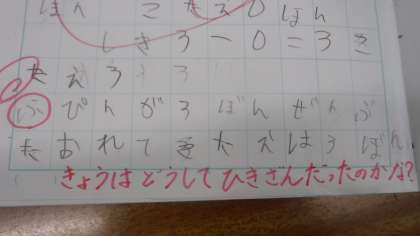 ほん こたえ0ほん
しき3-0=3き
たえろ3
ぶぴんがろぼんぜんぶ
たおれてきたえは3ぼん
きょうはどうしてひきざんだったのかな?